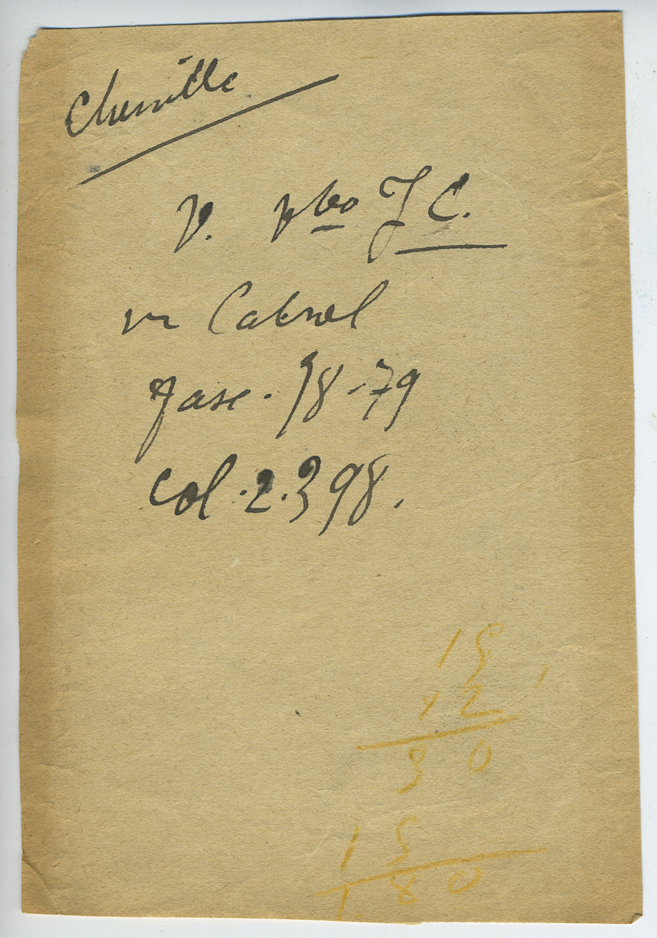 Chenille
V. pbo J C.
in Cabrol
fasc. 78-79
col. 2.398.
15
12
30
15
180